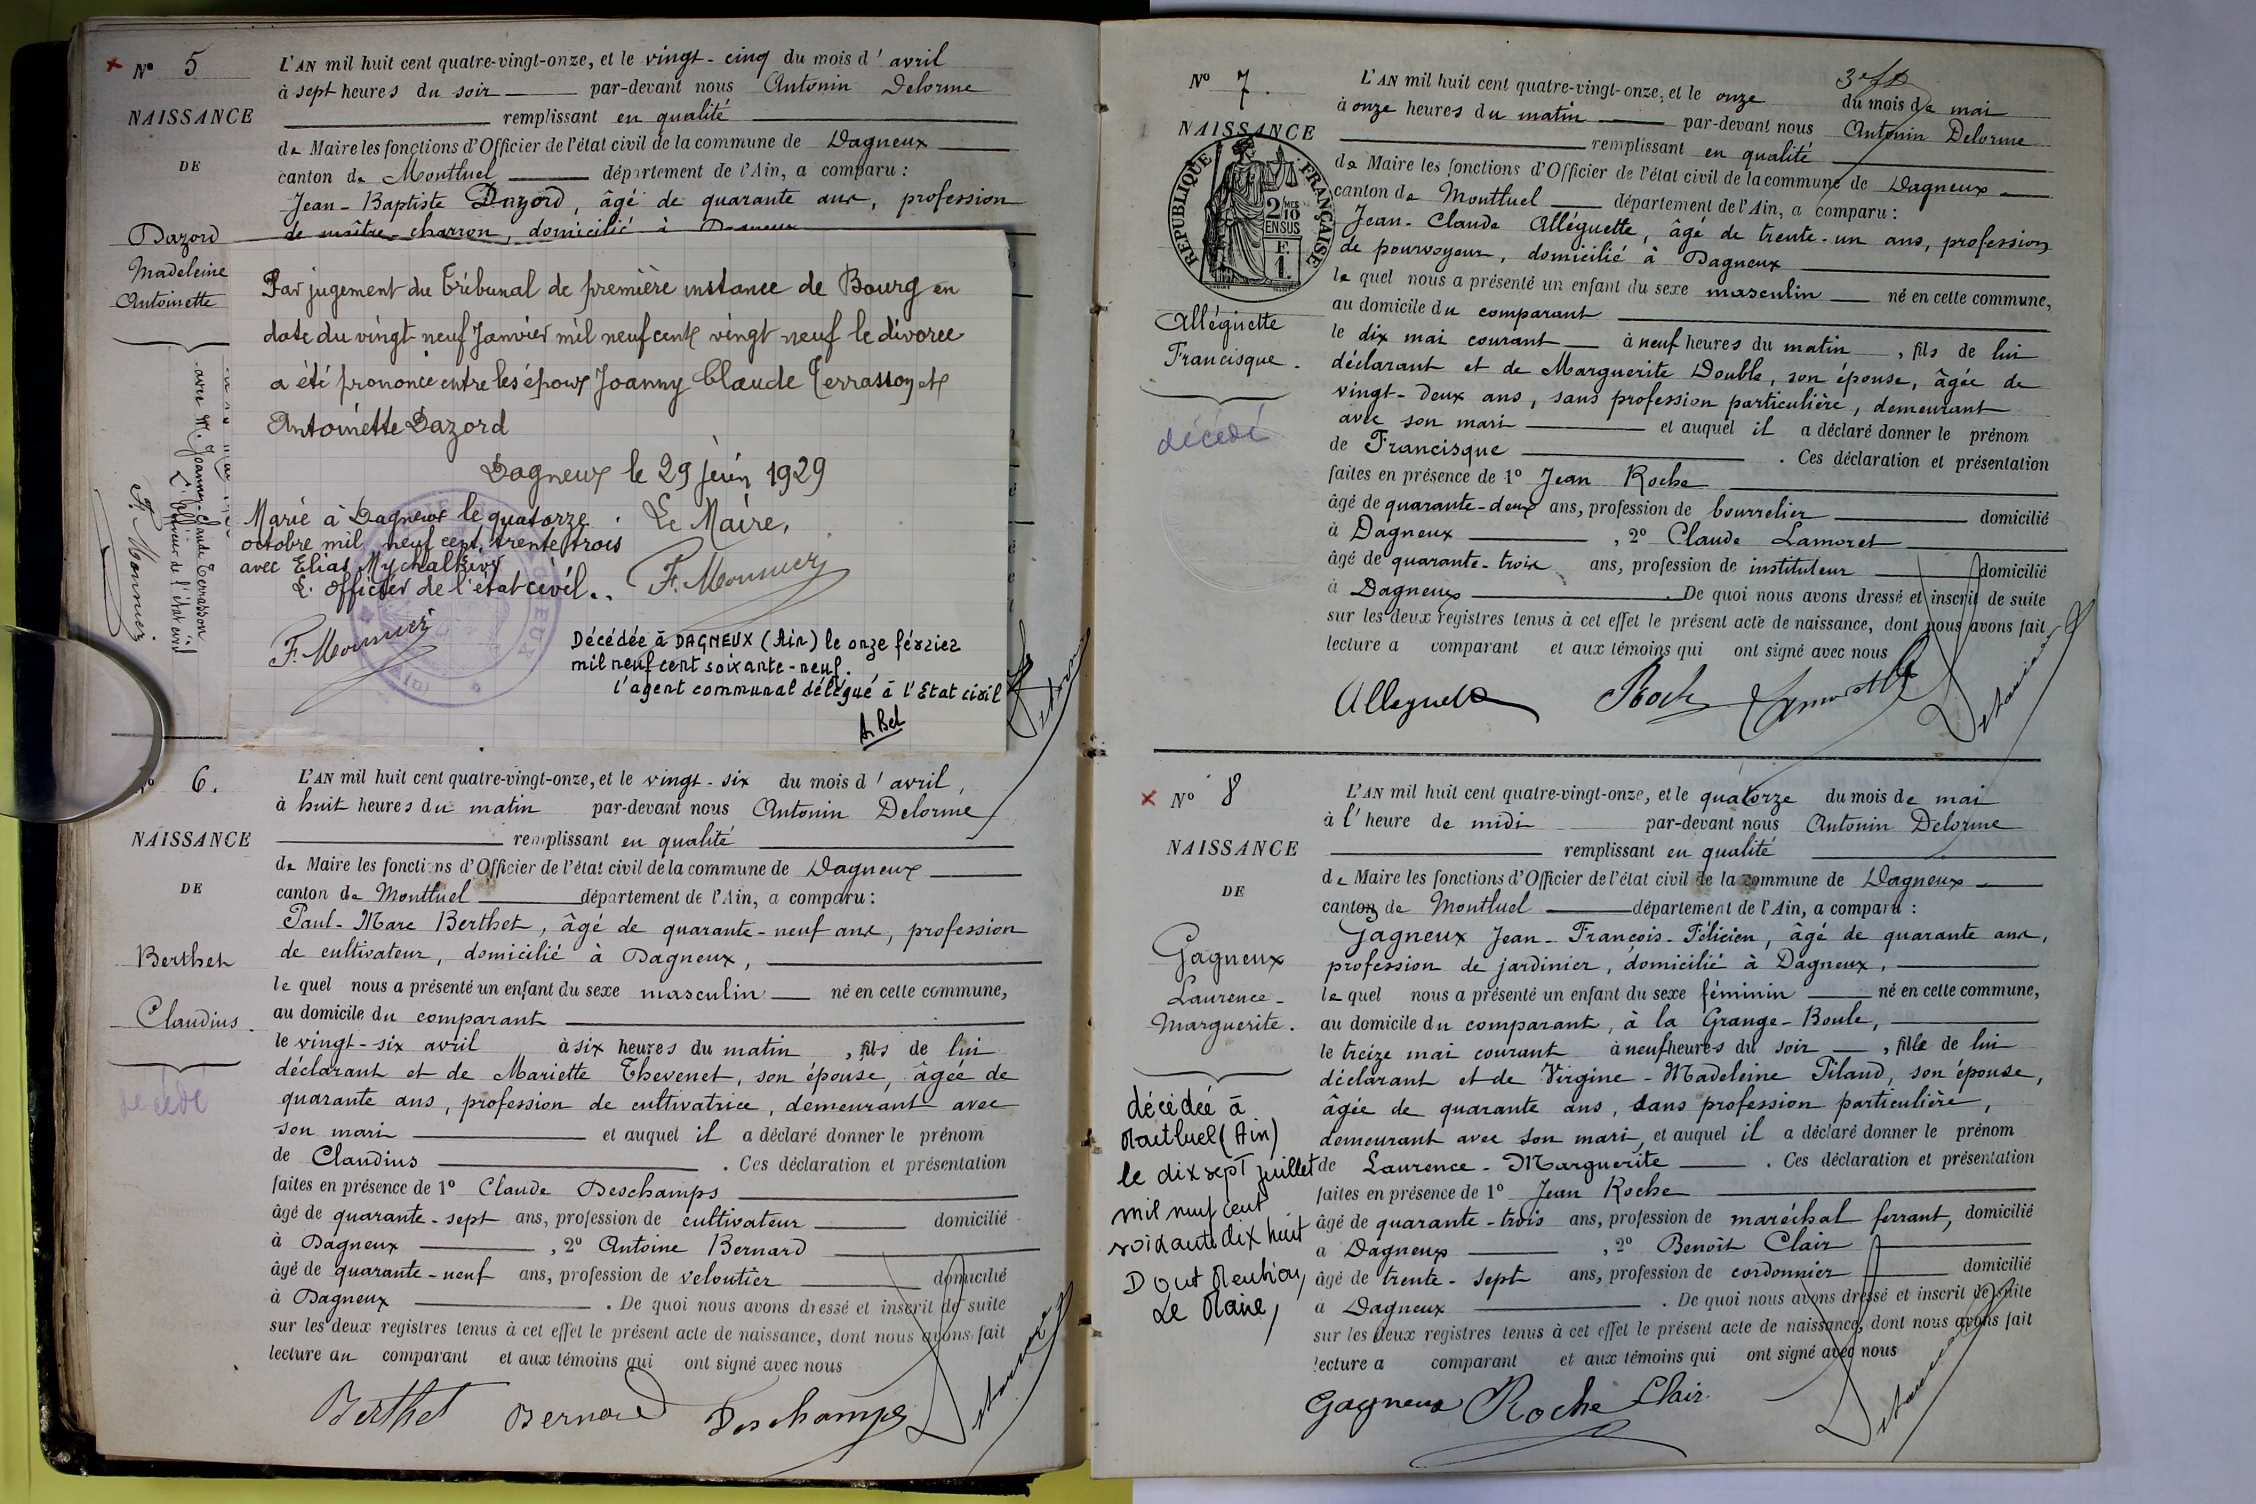 Nº 5
NAISSANCE
DE
Dazord
Madeleine
Antoinette
L'AN mil huit cent quatre-vingt-onze, et le vingt-cinq du mois d'avril
à sept heures du soir par-devant nous Antonin Delorme
remplissant en qualité
de Maire les fonctions d'Officier de l'état civil de la commune de Dagneux
canton de Montluel département de l'Ain, a comparu :
Jean-Baptiste Dazord, âgé de quarante ans, profession
de maître-charron, domicilié à Dagneux
Par jugement du Tribunal de première instance de Bourg en
date du vingt neuf Janvier mil neuf cent vingt neuf le divorce
a été prononcé entre les époux Joanny Claude Terrasson et
Antoinette Dazord
Dagneux le 29 juin 1929
Le Maire,
F. Mounier
Marié à Dagneux le quatorze
octobre mil neuf cent trente trois
avec Elias Mychalkiv
L'officier de l'état civil..
F. Mounier
Décédée à DAGNEUX (Ain) le onze février
mil neuf cent soixante-neuf.
l'agent communal délégué à l'Etat civil
A. Bel
avec M. Joanny-Claude Terrasson
L'officier de l'état civil
F. Mounier
Nº 6.
NAISSANCE
DE
Berthet
Claudius.
décédé
L'AN mil huit cent quatre-vingt-onze, et le vingt-six du mois d'avril,
à huit heures du matin par-devant nous Antonin Delorme
remplissant en qualité
de Maire les fonctions d'Officier de l'état civil de la commune de Dagneux
canton de Montluel département de l'Ain, a comparu :
Paul-Marc Berthet, âgé de quarante-neuf ans, profession
de cultivateur, domicilié à Dagneux,
lequel nous a présenté un enfant du sexe masculin né en cette commune,
au domicile du comparant
le vingt-six avril à six heures du matin, fils de lui
déclarant et de Mariette Thevenet, son épouse, âgée de
quarante ans, profession de cultivatrice, demeurant avec
son mari et auquel il a déclaré donner le prénom
de Claudius . Ces déclaration et présentation
faites en présence de 1º Claude Deschamps
âgé de quarante-sept ans, profession de cultivateur domicilié
à Dagneux , 2º Antoine Bernard
âgé de quarante-neuf ans, profession de veloutier domicilié
à Dagneux . De quoi nous avons dressé et inscrit de suite
sur les deux registres tenus à cet effet le présent acte de naissance, dont nous avons fait
lecture au comparant et aux témoins qui ont signé avec nous
Berthet Bernard Deschamps Delorme
Nº 7.
NAISSANCE
RÉPUBLIQUE FRANÇAISE
2/10 MES
EN SUS
F.
1.
Alléguette
Francisque.
décédé
L'AN mil huit cent quatre-vingt-onze, et le onze du mois de mai
à onze heures du matin par-devant nous Antonin Delorme
remplissant en qualité
de Maire les fonctions d'Officier de l'état civil de la commune de Dagneux
canton de Montluel département de l'Ain, a comparu :
Jean-Claude Alléguette, âgé de trente-un ans, profession
de pourvoyeur, domicilié à Dagneux
lequel nous a présenté un enfant du sexe masculin né en cette commune,
au domicile du comparant
le dix mai courant à neuf heures du matin, fils de lui
déclarant et de Marguerite Double, son épouse, âgée de
vingt-deux ans, sans profession particulière, demeurant
avec son mari et auquel il a déclaré donner le prénom
de Francisque . Ces déclaration et présentation
faites en présence de 1º Jean Roche
âgé de quarante-deux ans, profession de bourrelier domicilié
à Dagneux , 2º Claude Lamoret
âgé de quarante-trois ans, profession de instituteur domicilié
à Dagneux . De quoi nous avons dressé et inscrit de suite
sur les deux registres tenus à cet effet le présent acte de naissance, dont nous avons fait
lecture a comparant et aux témoins qui ont signé avec nous
Roch Delorme
Nº 8
NAISSANCE
DE
Gagneux
Laurence-
Marguerite.
décédée à
Montluel (Ain)
le dix sept juillet
mil neuf cent
soixante dix huit
Dont Mention,
Le Maire,
L'AN mil huit cent quatre-vingt-onze, et le quatorze du mois de mai
à l'heure de midi par-devant nous Antonin Delorme
remplissant en qualité
de Maire les fonctions d'Officier de l'état civil de la commune de Dagneux
canton de Montluel département de l'Ain, a comparu :
Gagneux Jean-François-Félicien, âgé de quarante ans,
profession de jardinier, domicilié à Dagneux,
lequel nous a présenté un enfant du sexe féminin né en cette commune,
au domicile du comparant, à la Grange-Boule,
le treize mai courant à neuf heures du soir, fille de lui
déclarant et de Virgine-Madeleine Pilaud, son épouse,
âgée de quarante ans, sans profession particulière,
demeurant avec son mari, et auquel il a déclaré donner le prénom
de Laurence-Marguerite . Ces déclaration et présentation
faites en présence de 1º Jean Roche
âgé de quarante-trois ans, profession de maréchal ferrant, domicilié
à Dagneux , 2º Benoît Clair
âgé de trente-sept ans, profession de cordonnier domicilié
à Dagneux . De quoi nous avons dressé et inscrit de suite
sur les deux registres tenus à cet effet le présent acte de naissance, dont nous avons fait
lecture a comparant et aux témoins qui ont signé avec nous
Gagneux Roche Clair Delorme